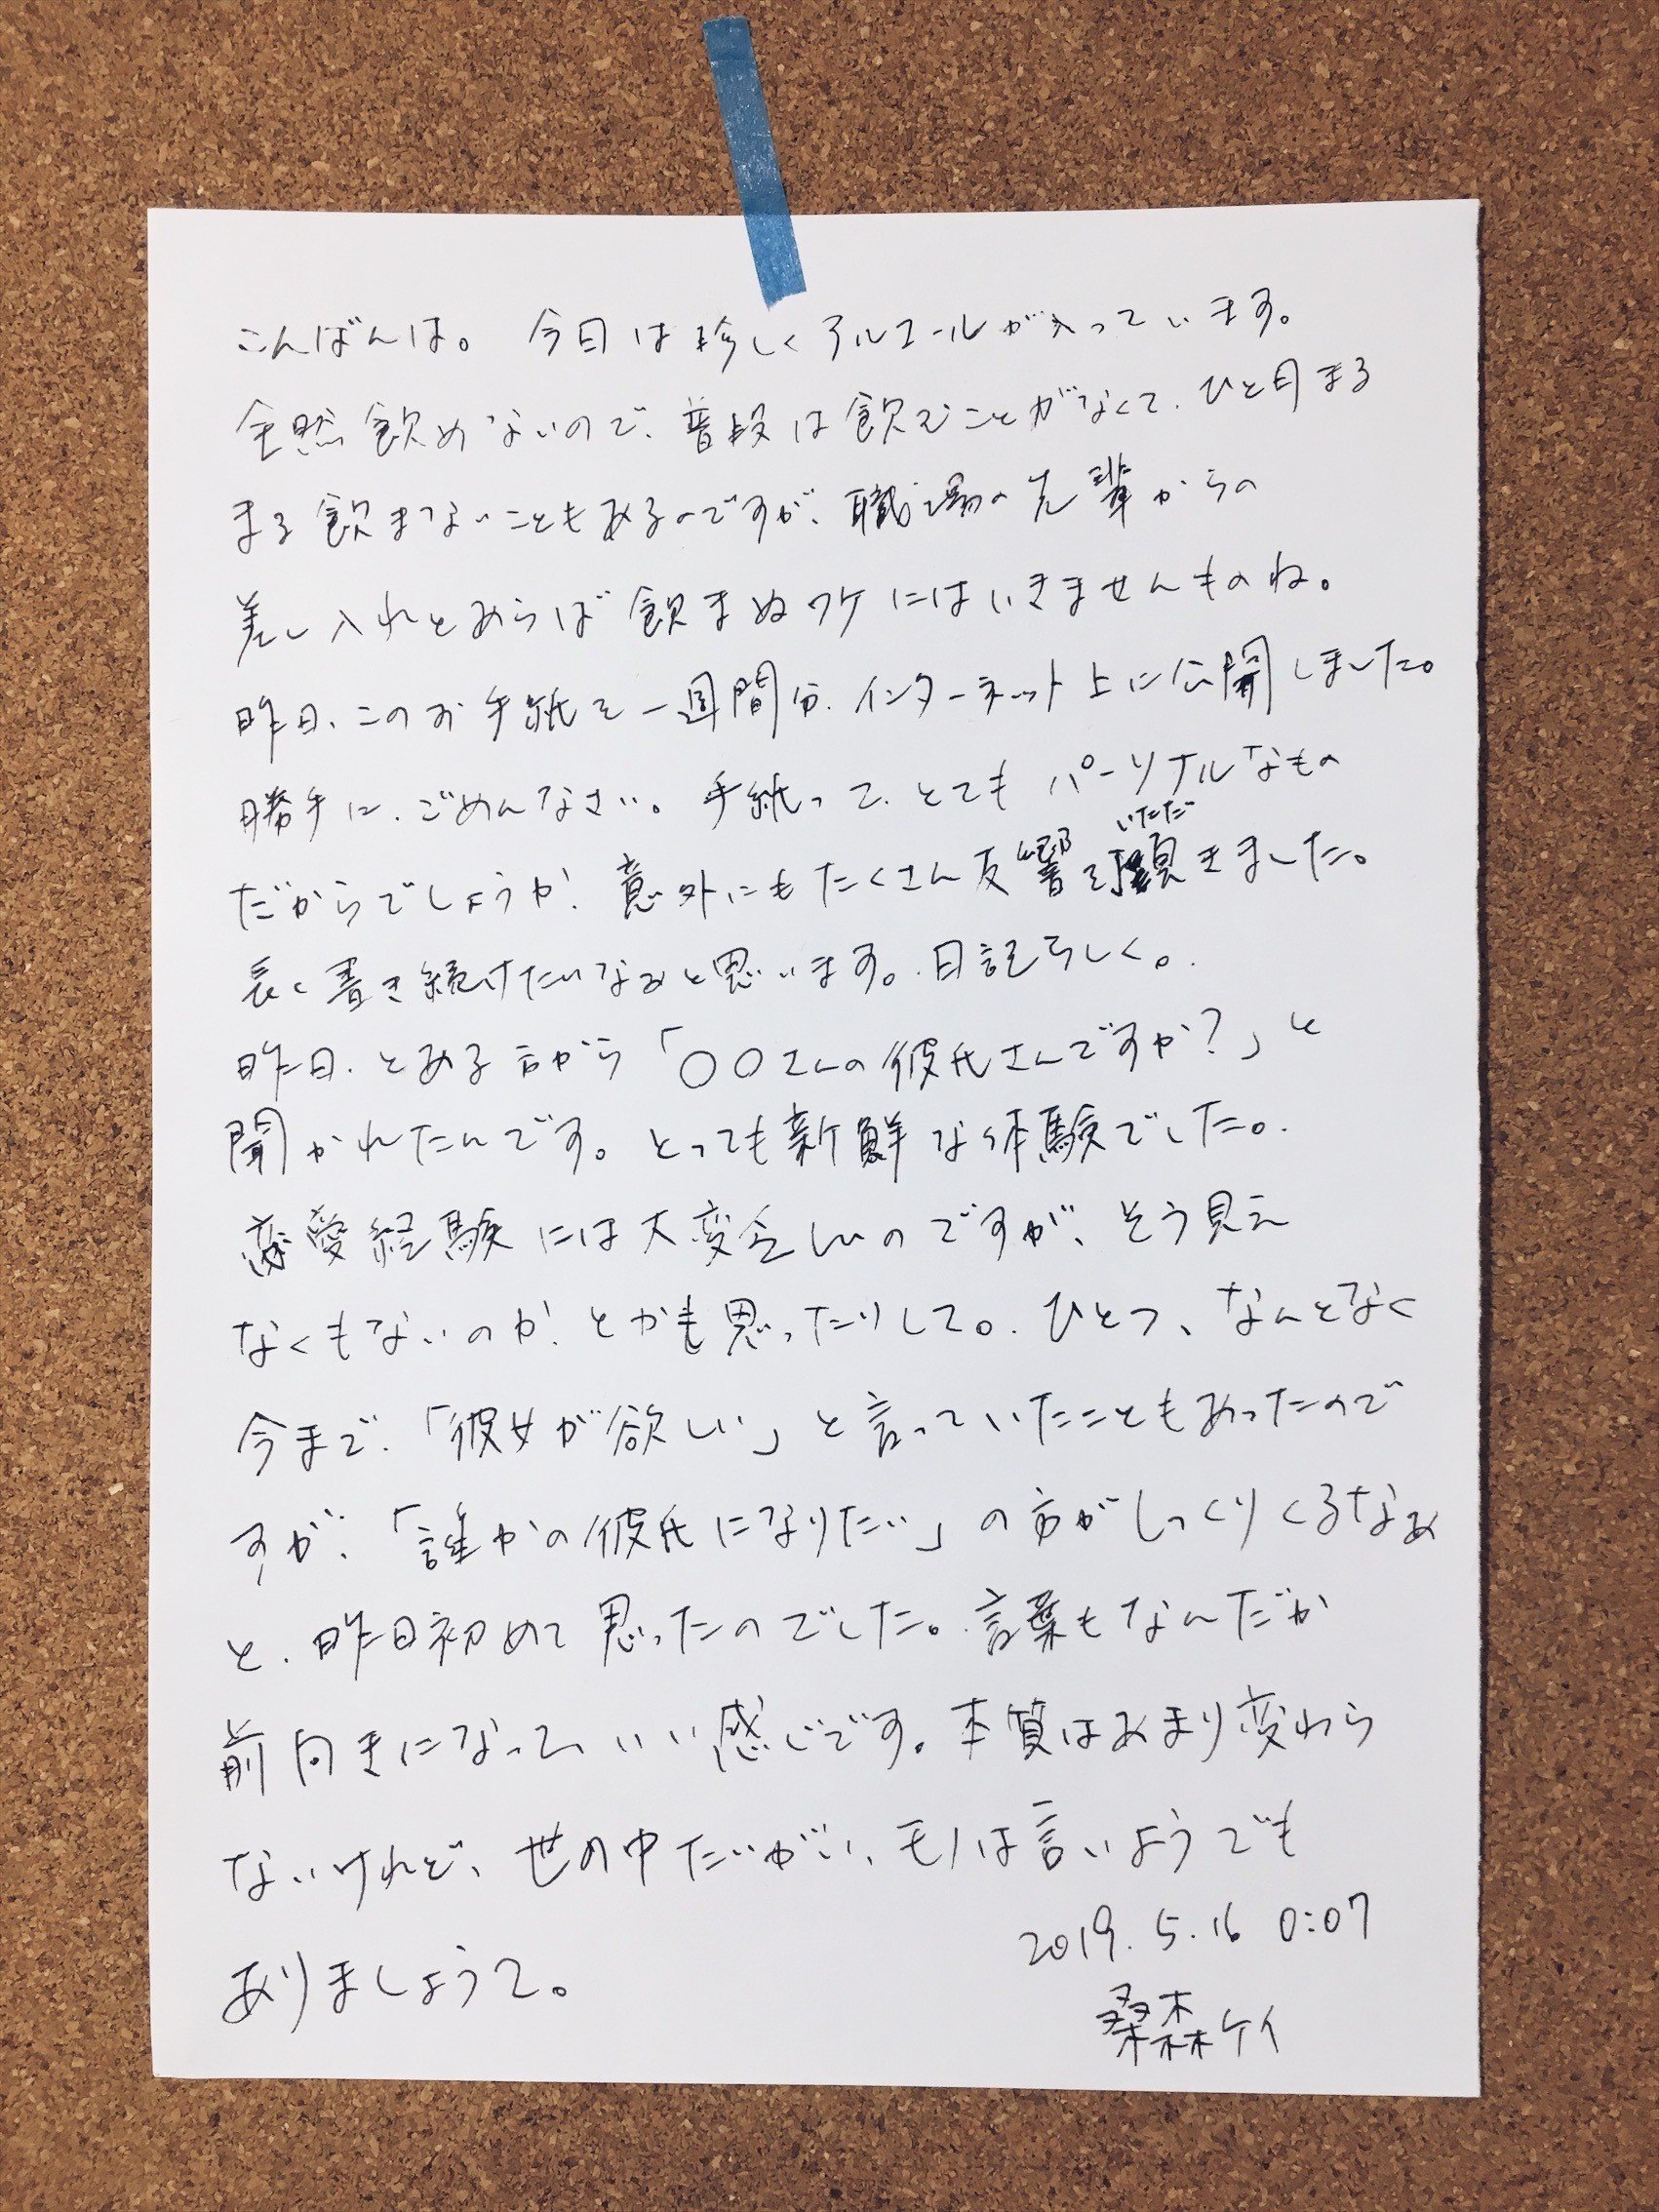 こんばんは。 今日は珍しくアルコールが入っています。
全然飲めないので、普段は飲むことがなくて、ひと月まる
まる飲まないこともあるのですが、職場の先輩からの
差し入れとあらば飲まぬワケにはいきませんものね。
昨日、このお手紙を一週間分、インターネット上に公開しました。
勝手に、ごめんなさい。手紙って、とてもパーソナルなもの
いただ
だからでしょうか、意外にもたくさん反響を頂きました。
長く書き続けたいなあと思います。日記らしく。
昨日、とある方から「〇〇さんの彼氏さんですか?」と
聞かれたんです。とっても新鮮な体験でした。
恋愛経験には大変乏しいのですが、そう見え
なくもないのか、とかも思ったりして。ひとつ、なんとなく
今まで、「彼女が欲しい」と言っていたこともあったので
すが、「誰かの彼氏になりたい」の方がしっくりくるなあ
と、昨日初めて思ったのでした。言葉もなんだか
前向きになって、いい感じです。本質はあまり変わら
ないけれど、世の中だいがい、モノは言いようでも
ありましょうて。
2019.5.16 0:07
桑森ケイ